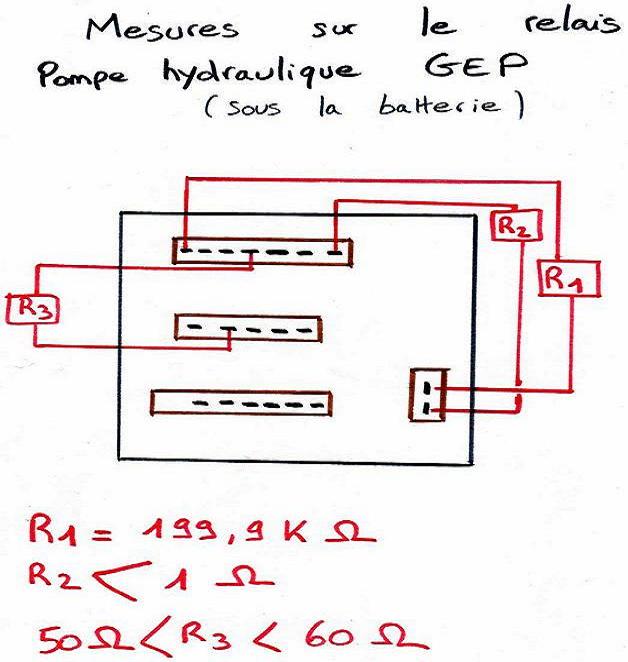 Mesures sur le relais
Pompe hydraulique GEP
(sous la batterie)
R2
R1
R3
R1 = 199,9 K Ω
R2 < 1 Ω
50Ω < R3 < 60 Ω